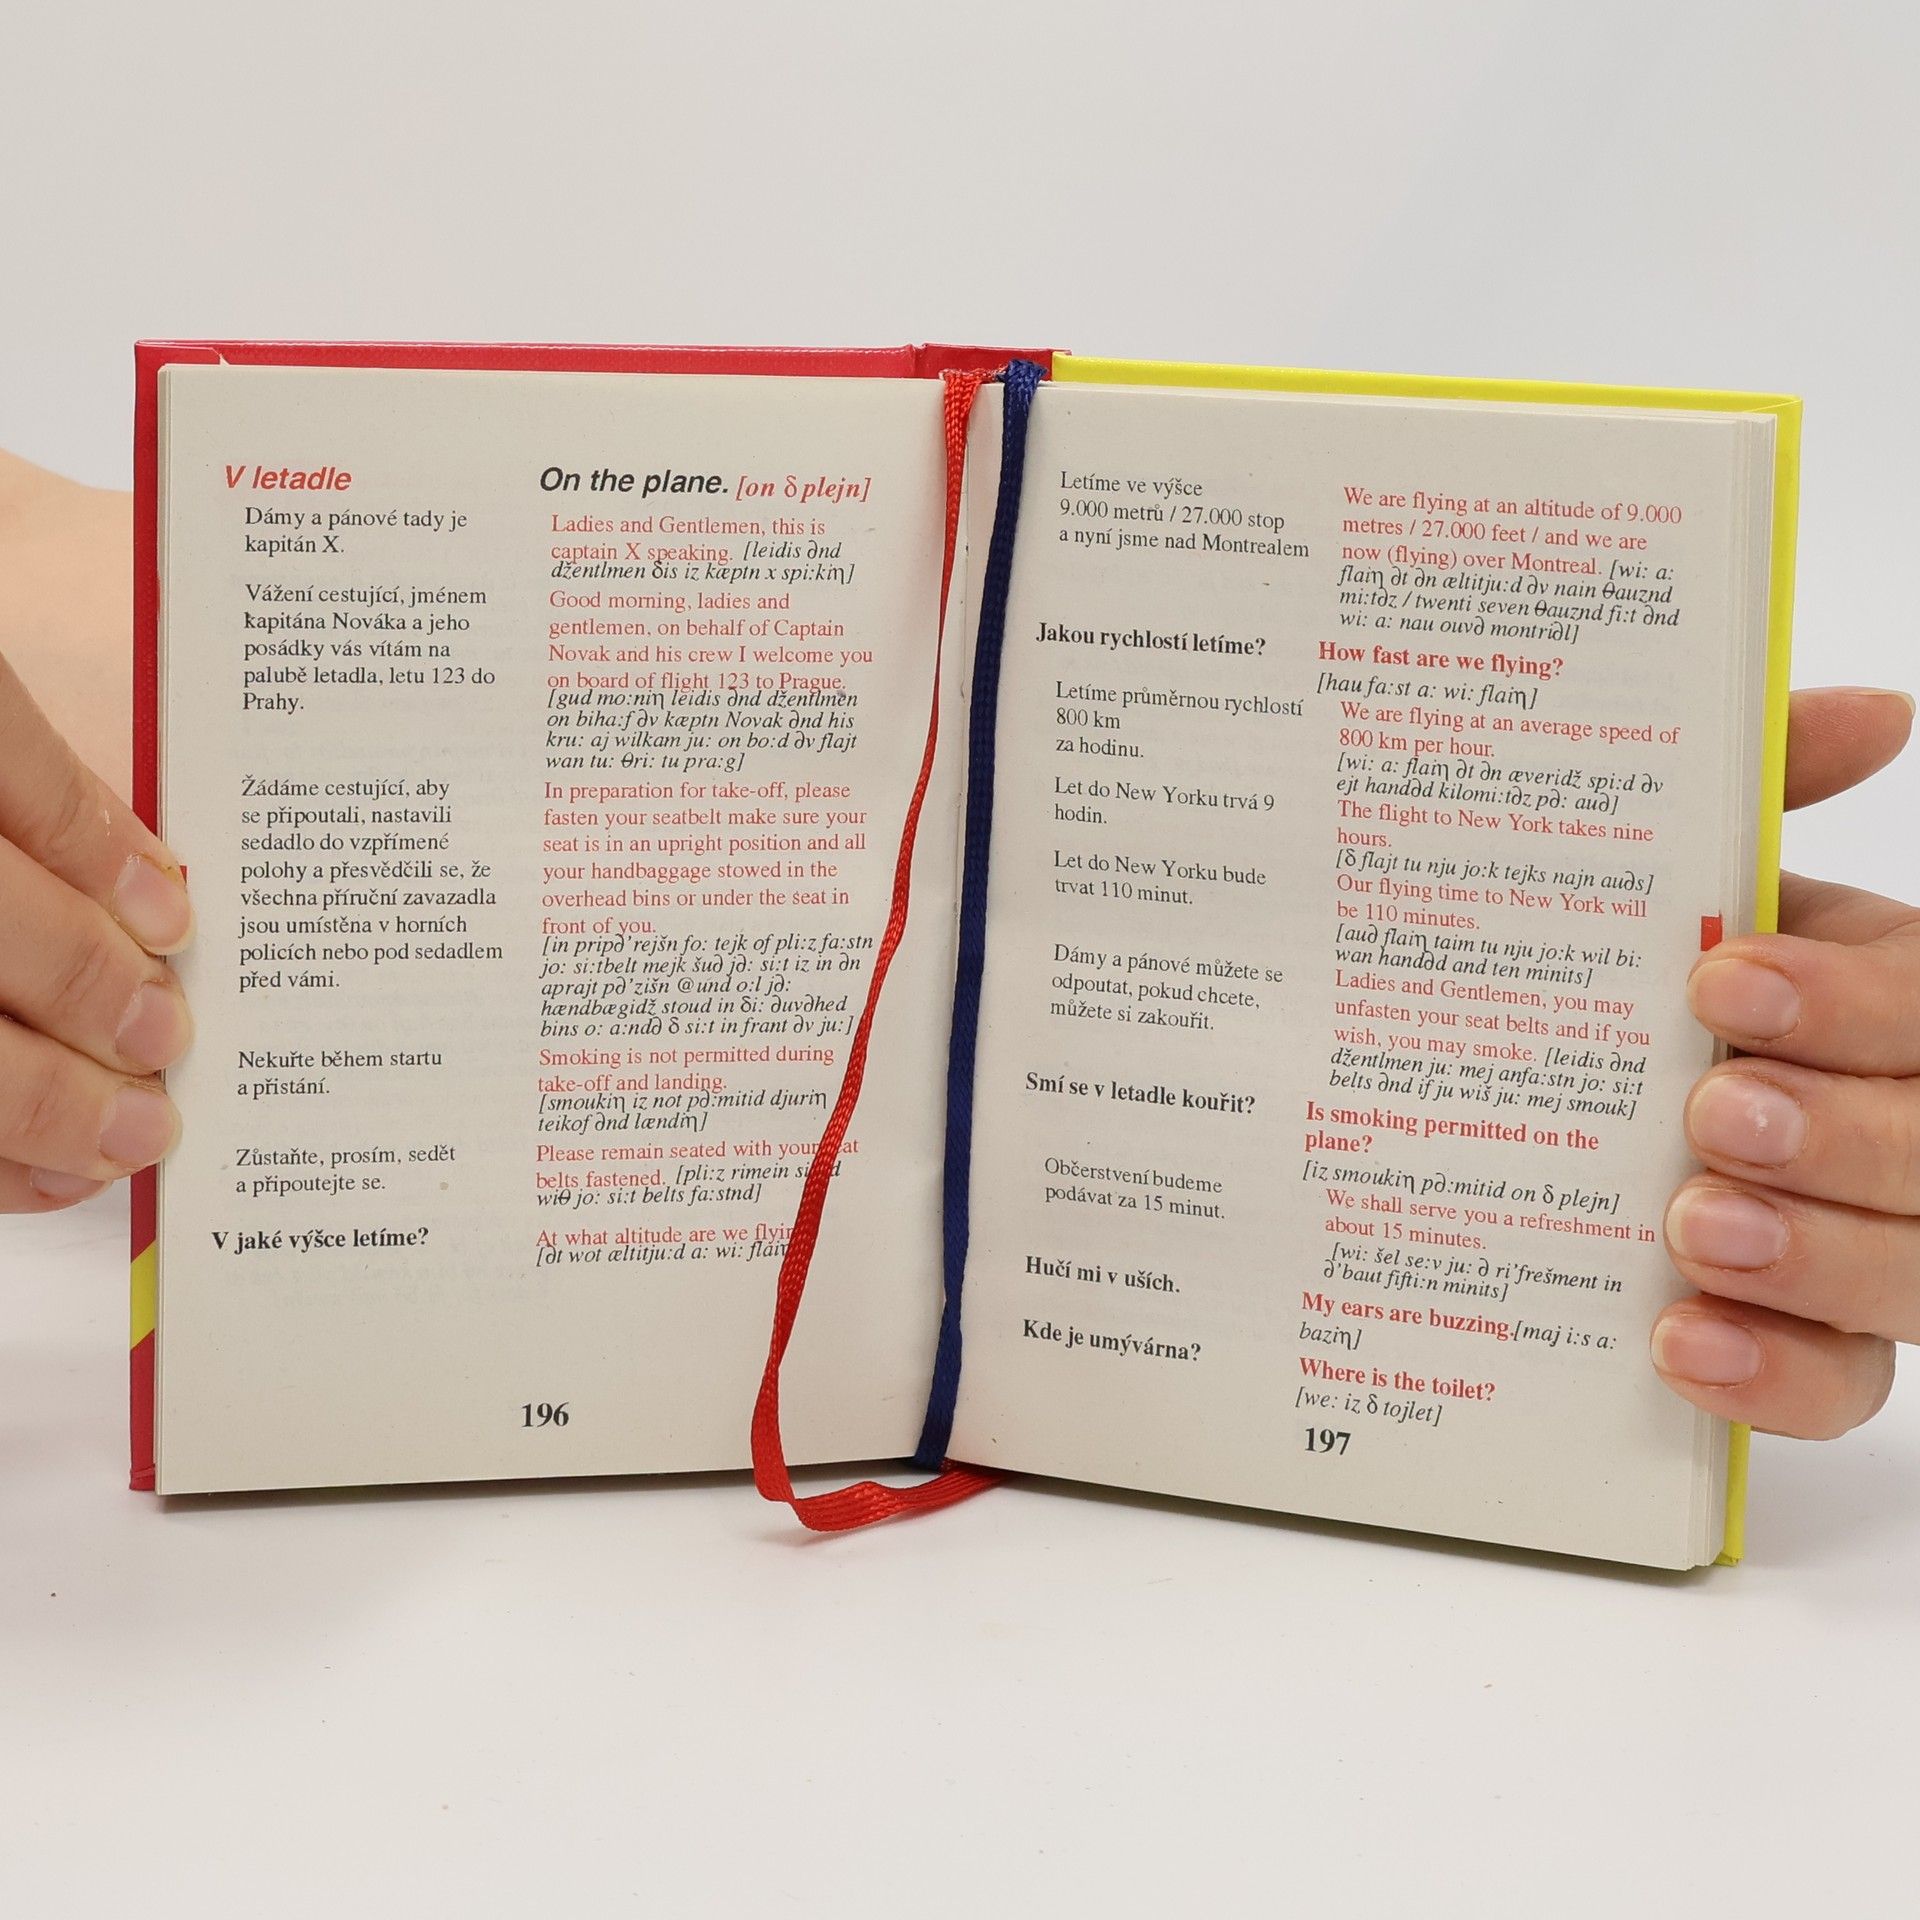 V letadle
Dámy a pánové tady je
kapitán X.
Vážení cestující, jménem
kapitána Nováka a jeho
posádky vás vítám na
palubě letadla, letu 123 do
Prahy.
Žádáme cestující, aby
se připoutali, nastavili
sedadlo do vzpřímené
polohy a přesvědčili se, že
všechna příruční zavazadla
jsou umístěna v horních
policích nebo pod sedadlem
před vámi.
Nekuřte během startu
a přistání.
Zůstaňte, prosím, sedět
a připoutejte se.
V jaké výšce letíme?
On the plane. [on δ plejn]
Ladies and Gentlemen, this is
captain X speaking. [leidis ∂nd
džentlmen δis iz kæptn x spi:kiη]
Good morning, ladies and
gentlemen, on behalf of Captain
Novak and his crew I welcome you
on board of flight 123 to Prague.
[gud mo:niη leidis ∂nd džentlmen
on biha:f ∂v kæptn Novak ∂nd his
kru: aj wilkam ju: on bo:d ∂v flajt
wan tu: θri: tu pra:g]
In preparation for take-off, please
fasten your seatbelt make sure your
seat is in an upright position and all
your handbaggage stowed in the
overhead bins or under the seat in
front of you.
[in prip∂'rejšn fo: tejk of pli:z fa:stn
jo: si:tbelt mejk šu∂ j∂: si:t iz in ∂n
aprajt p∂'zišn @und o:l j∂:
hændbægidž stoud in δi: ∂uv∂hed
bins o: a:nd∂ δ si:t in frant ∂v ju:]
Smoking is not permitted during
take-off and landing.
[smoukiη iz not p∂:mitid djuriη
teikof ∂nd lændiη]
Please remain seated with your
belts fastened. [pli:z rimein
wiθ jo: si:t belts fa:stnd]
At what altitude are we
[∂t wot æltitju:d a: wi:
196
Letíme ve výšce
9.000 metrů / 27.000 stop
a nyní jsme nad Montrealem
Jakou rychlostí letíme?
Letíme průměrnou rychlostí
800 km
za hodinu.
Let do New Yorku trvá 9
hodin.
Let do New Yorku bude
trvat 110 minut.
Dámy a pánové můžete se
odpoutat, pokud chcete,
můžete si zakouřit.
Smí se v letadle kouřit?
Občerstvení budeme
podávat za 15 minut.
Hučí mi v uších.
Kde je umývárna?
We are flying at an altitude of 9.000
metres / 27.000 feet / and we are
now (flying) over Montreal. [wi: a:
flaiη ∂t ∂n æltitju:d ∂v nain θauznd
mi:t∂z / twenti seven θauznd fi:t ∂nd
wi: a: nau ouv∂ montri∂l]
How fast are we flying?
[hau fa:st a: wi: flaiη]
We are flying at an average speed of
800 km per hour.
[wi: a: flaiη ∂t ∂n æveridž spi:d ∂v
ejt hand∂d kilomi:t∂z p∂: au∂]
The flight to New York takes nine
hours.
[δ flajt tu nju jo:k tejks najn au∂s]
Our flying time to New York will
be 110 minutes.
[au∂ flaiη taim tu nju jo:k wil bi:
wan hand∂d and ten minits]
Ladies and Gentlemen, you may
unfasten your seat belts and if you
wish, you may smoke. [leidis ∂nd
džentlmen ju: mej anfa:stn jo: si:t
belts ∂nd if ju wiš ju: mej smouk]
Is smoking permitted on the
plane?
[iz smoukiη p∂:mitid on δ plejn]
We shall serve you a refreshment in
about 15 minutes.
[wi: šel se:v ju: ∂ ri'frešment in
∂'baut fifti:n minits]
My ears are buzzing.[maj i:s a:
baziη]
Where is the toilet?
[we: iz δ tojlet]
197